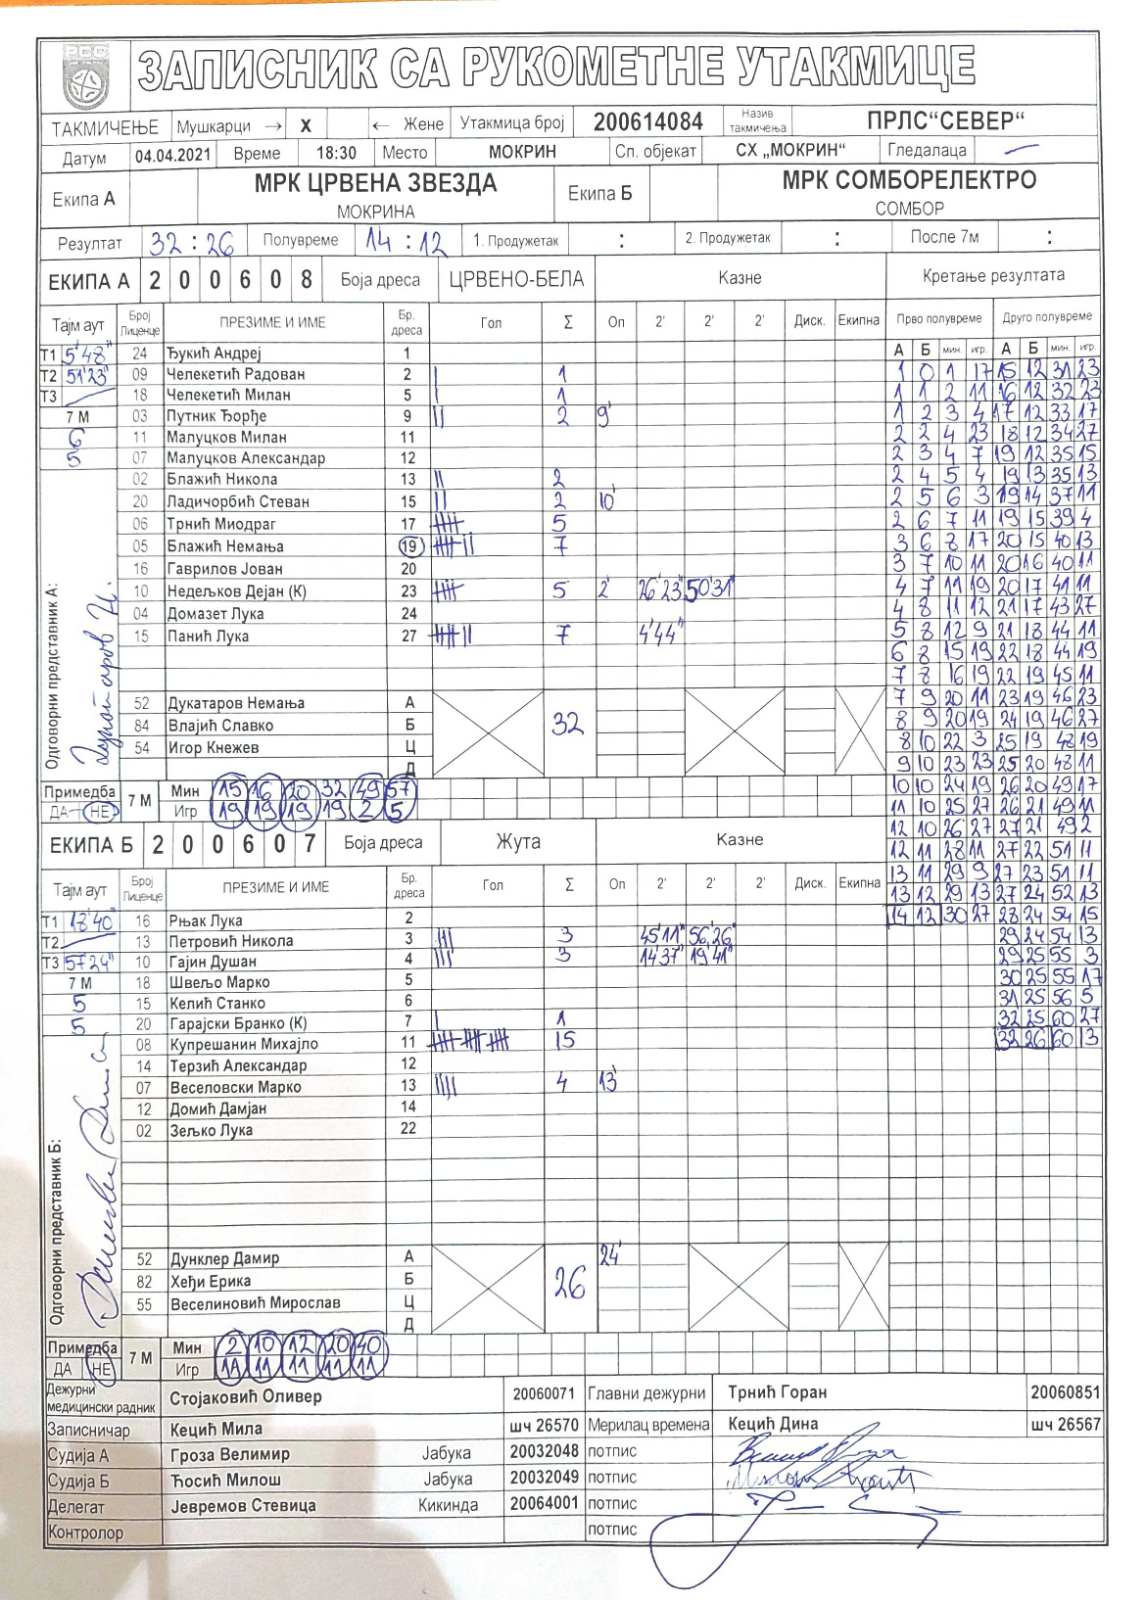 РСС
ЗАПИСНИК СА РУКОМЕТНЕ УТАКМИЦЕ
ТАКМИЧЕЊЕ Мушкарци → X ← Жене Утакмица број 200614084 Назив такмичења ПРЛС“СЕВЕР“
Датум 04.04.2021 Време 18:30 Место МОКРИН Сп. објекат СХ „МОКРИН“ Гледалаца —
Екипа А МРК ЦРВЕНА ЗВЕЗДА Екипа Б МРК СОМБОРЕЛЕКТРО
МОКРИНА СОМБОР
Резултат 32 : 26 Полувреме 14 : 12 1. Продужетак : 2. Продужетак : После 7м :
ЕКИПА А 2 0 0 6 0 8 Боја дреса ЦРВЕНО-БЕЛА Казне Кретање резултата
Тајм аут Број Лиценце ПРЕЗИМЕ И ИМЕ Бр. дреса Гол Σ Оп 2' 2' 2' Диск. Екипна Прво полувреме Друго полувреме
А Б мин. игр. А Б мин. игр.
Т1 5'48" 24 Ђукић Андреј 1
1 0 1 17 15 12 31 23
Т2 51'23" 09 Челекетић Радован 2 | 1
1 1 2 11 16 12 32 23
Т3 18 Челекетић Милан 5 | 1
1 2 3 4 17 12 33 17
7 М 03 Путник Ђорђе 9 || 2 9'
2 2 4 23 18 12 34 27
6 11 Малуцков Милан 11
2 3 4 7 19 12 35 15
5 07 Малуцков Александар 12
2 4 5 4 19 13 35 13
02 Блажић Никола 13 || 2
2 5 6 3 19 14 37 11
20 Ладичорбић Стеван 15 || 2 10'
2 6 7 11 19 15 39 4
06 Трнић Миодраг 17 5
3 6 8 17 20 15 40 13
05 Блажић Немања 19 7
3 7 10 11 20 16 40 11
16 Гаврилов Јован 20
4 7 11 19 20 17 41 11
10 Недељков Дејан (К) 23 5 2' 26'23" 50'31"
4 8 11 12 21 17 43 27
04 Домазет Лука 24
5 8 12 9 21 18 44 11
15 Панић Лука 27 7 4'44"
6 8 15 19 22 18 44 19
7 8 16 19 22 19 45 11
Одговорни представник А:
7 9 20 11 23 19 46 23
52 Дукатаров Немања А 32
8 9 20 19 24 19 46 27
84 Влајић Славко Б
8 10 22 3 25 19 48 19
54 Игор Кнежев Ц
9 10 23 23 25 20 48 11
Д
10 10 24 19 26 20 49 17
Примедба 7 М Мин 15 16 20 32 49 57
11 10 25 27 26 21 49 11
ДА НЕ Игр 19 19 19 19 2 5
12 10 26 27 27 21 49 2
ЕКИПА Б 2 0 0 6 0 7 Боја дреса Жута Казне
12 11 28 11 27 22 51 11
13 11 29 9 27 23 51 11
Тајм аут Број Лиценце ПРЕЗИМЕ И ИМЕ Бр. дреса Гол Σ Оп 2' 2' 2' Диск. Екипна
13 12 29 13 27 24 52 13
14 12 30 27 28 24 54 15
Т1 18'40" 16 Рњак Лука 2
29 24 54 13
Т2 13 Петровић Никола 3 ||| 3 45'11" 56'26"
29 25 55 3
Т3 57'24" 10 Гајин Душан 4 ||| 3 14'37" 19'41"
30 25 55 17
7 М 18 Швељо Марко 5
31 25 56 5
5 15 Келић Станко 6
32 25 60 27
5 20 Гарајски Бранко (К) 7 | 1
32 26 60 13
08 Купрешанин Михајло 11 15
14 Терзић Александар 12
07 Веселовски Марко 13 |||| 4 13'
12 Домић Дамјан 14
02 Зељко Лука 22
Одговорни представник Б:
52 Дунклер Дамир А 26 24'
82 Хеђи Ерика Б
55 Веселиновић Мирослав Ц
Д
Примедба 7 М Мин 2 10 12 20 40
ДА НЕ Игр 11 11 11 11 11
Дежурни медицински радник Стојаковић Оливер 20060071 Главни дежурни Трнић Горан 20060851
Записничар Кецић Мила шч 26570 Мерилац времена Кецић Дина шч 26567
Судија А Гроза Велимир Јабука 20032048 потпис
Судија Б Ћосић Милош Јабука 20032049 потпис
Делегат Јевремов Стевица Кикинда 20064001 потпис
Контролор потпис